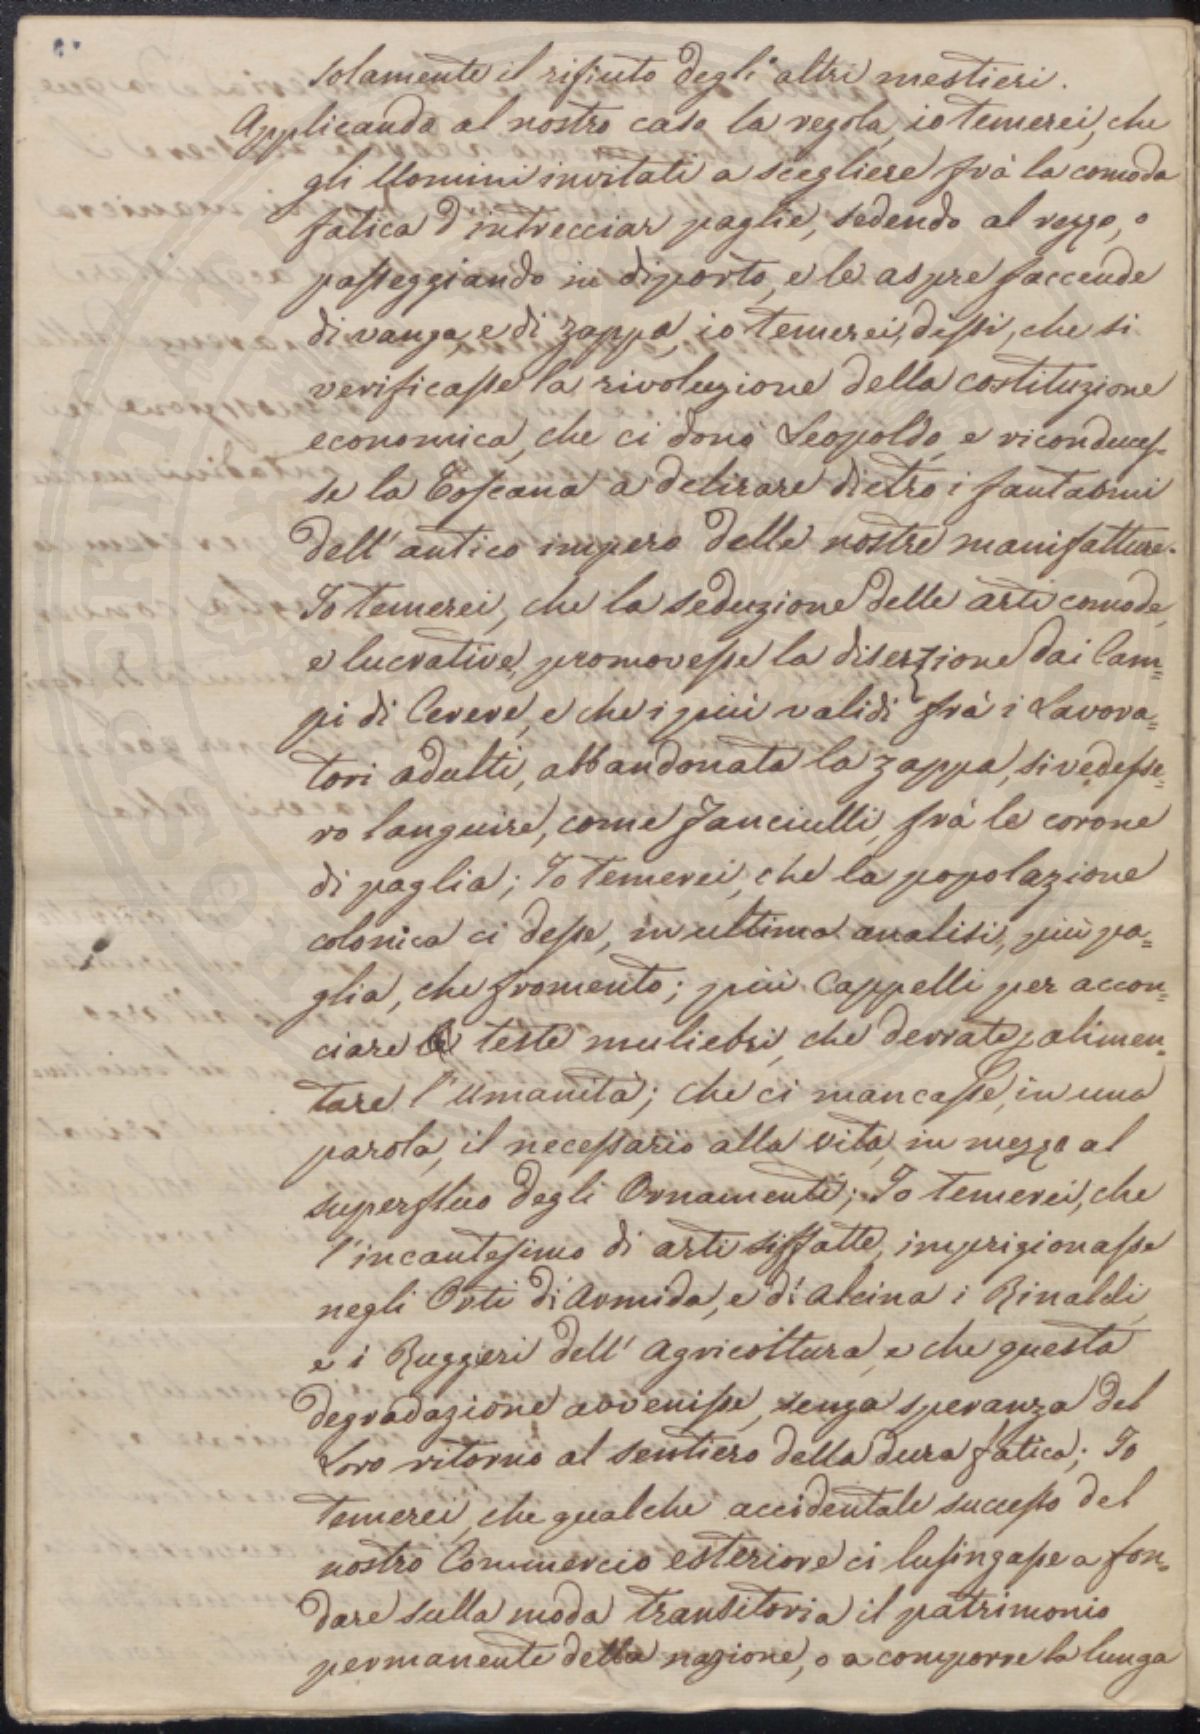 solamente il rifiuto degli altri mestieri.
Applicando al nostro caso la regola, io temerei, che
gli Uomini invitati a scegliere frà la comoda
fatica d'intrecciar paglie, sedendo al rezzo, o
passeggiando in diporto, e le aspre faccende
di vanga, e di zappa, io temerei, dissi, che si
verificasse la rivoluzione della costituzione
economica, che ci donò Leopoldo, e riconduces-
se la Toscana a delirare dietro i fantasmi
dell'antico impero delle nostre manifatture.
Io temerei, che la seduzione delle arti comode,
e lucrative, promovesse la diserzione dai Cam=
pi di Cerere, e che i più validi frà i Lavora=
tori adulti, abbandonata la zappa, si vedesse=
ro languire, come Fanciulli, frà le corone
di paglia; Io temerei, che la popolazione
colonica ci desse, in ultima analisi, più pa=
glia, che fromento; più Cappelli per accon=
ciare le teste muliebri, che derrate p. alimen=
tare l'umanità; che ci mancasse, in una
parola, il necessario alla vita, in mezzo al
superfluo degli Ornamenti; Io temerei, che
l'incantesimo di arti siffatte, imprigionasse
negli Orti di Armida, e di Alcina i Rinaldi,
e i Ruggeri dell'Agricoltura, e che questa
degradazione avvenisse, senza speranza del
Loro ritorno al sentiero della dura fatica; Io
temerei, che qualche accidentale successo del
nostro Commercio esteriore ci lusingasse a fon=
dare sulla moda transitoria il patrimonio
permanente della nazione, o a comporre la lunga